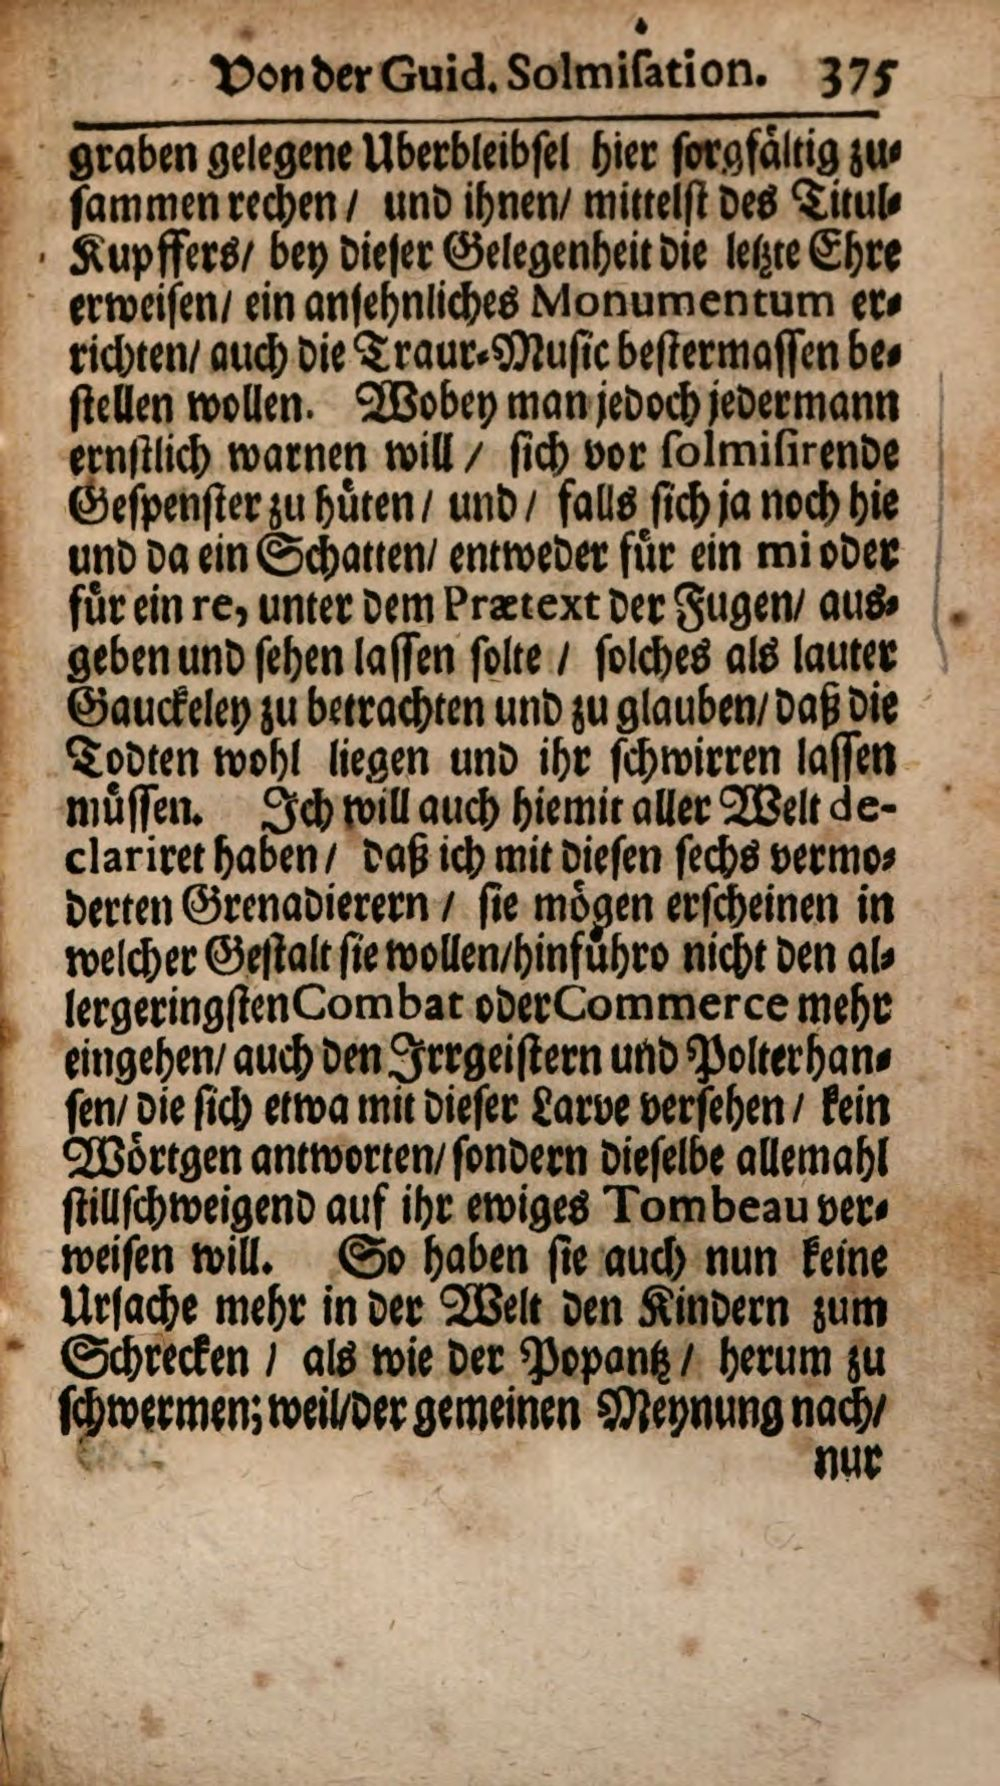 Von der Guid. Solmiſation. 375
graben gelegene Uberbleibſel hier ſorgfältig zu-
ſammen rechen / und ihnen/ mittelſt des Titul-
Kupffers/ bey dieſer Gelegenheit die letzte Ehre
erweiſen/ ein anſehnliches Monumentum er-
richten/ auch die Traur-Muſic beſtermaſſen be-
ſtellen wollen. Wobey man jedoch jedermann
ernſtlich warnen will / ſich vor ſolmiſirende
Geſpenſter zu hüten / und / falls ſich ja noch hie
und da ein Schatten/ entweder für ein mi oder
für ein re, unter dem Prætext der Fugen/ aus-
geben und ſehen laſſen ſolte / ſolches als lauter
Gauckeley zu betrachten und zu glauben/ daß die
Todten wohl liegen und ihr ſchwirren laſſen
müſſen. Ich will auch hiemit aller Welt de-
clariret haben / daß ich mit dieſen ſechs vermo-
derten Grenadierern / ſie mögen erſcheinen in
welcher Geſtalt ſie wollen/hinführo nicht den al-
lergeringſten Combat oder Commerce mehr
eingehen/ auch den Irrgeiſtern und Polterhan-
ſen/ die ſich etwa mit dieſer Larve verſehen / kein
Wörtgen antworten/ ſondern dieſelbe allemahl
ſtillſchweigend auf ihr ewiges Tombeau ver-
weiſen will. So haben ſie auch nun keine
Urſache mehr in der Welt den Kindern zum
Schrecken / als wie der Popantz / herum zu
ſchwermen; weil/der gemeinen Meynung nach/
nur